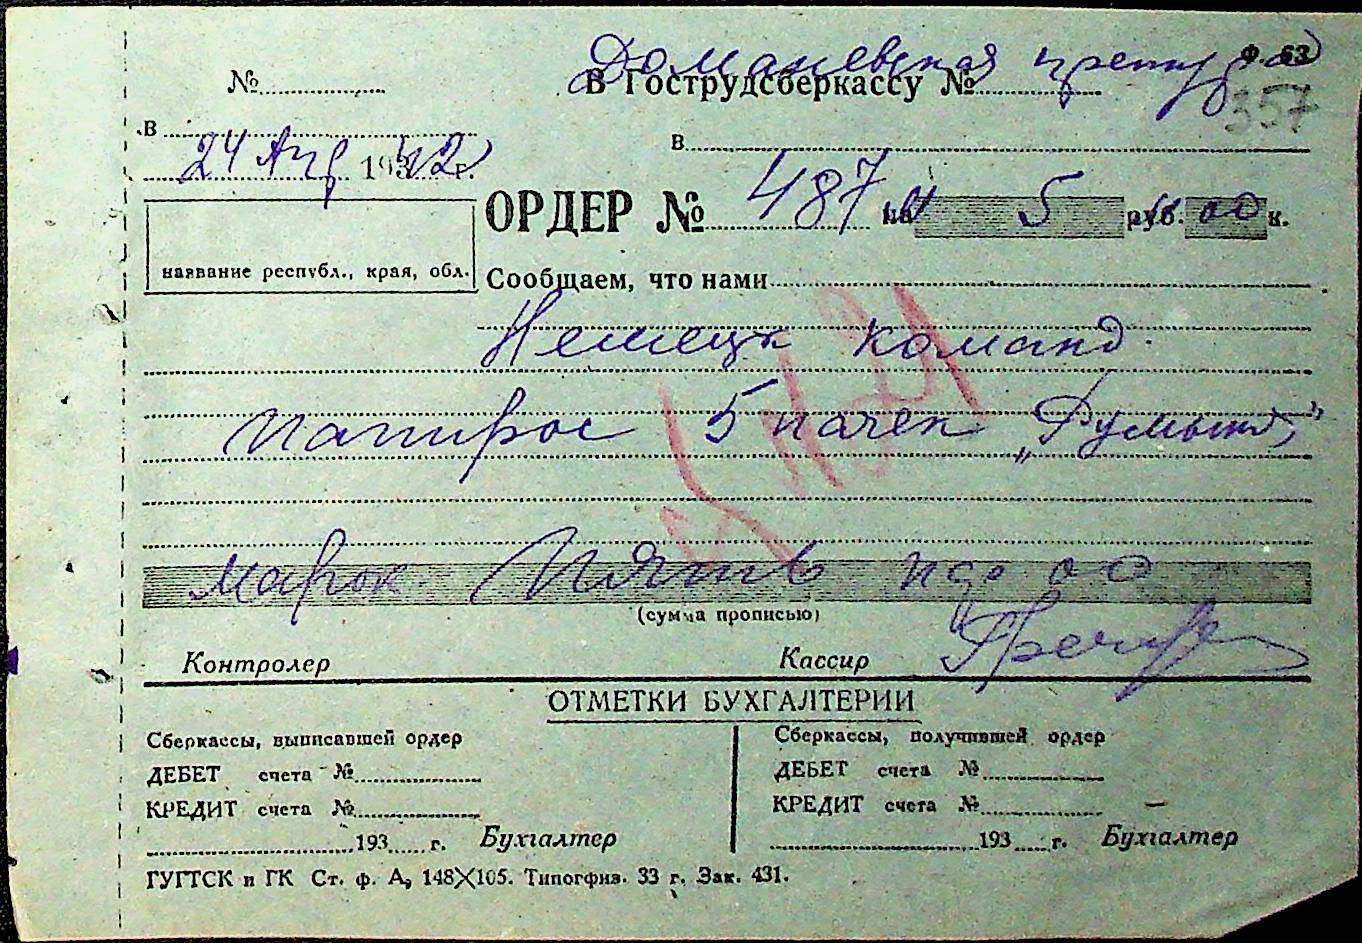 Доманевская Ф. 63
№ В Гострудсберкассу №
357
в в
24 Апр 1942 г.
ОРДЕР № 487 на 5 руб. 00 к.
название республ., края, обл.
Сообщаем, что нами
Немецк команд.
Папирос 5 пачек „Румыния”
Марок Пять пф 00
(сумма прописью)
Контролер Кассир
ОТМЕТКИ БУХГАЛТЕРИИ
Сберкассы, выписавшей ордер Сберкассы, получившей ордер
ДЕБЕТ счета № ДЕБЕТ счета №
КРЕДИТ счета № КРЕДИТ счета №
193 г. Бухгалтер 193 г. Бухгалтер
ГУГТСК и ГК Ст. ф. А, 148X105. Типогфиз. 33 г. Зак. 431.